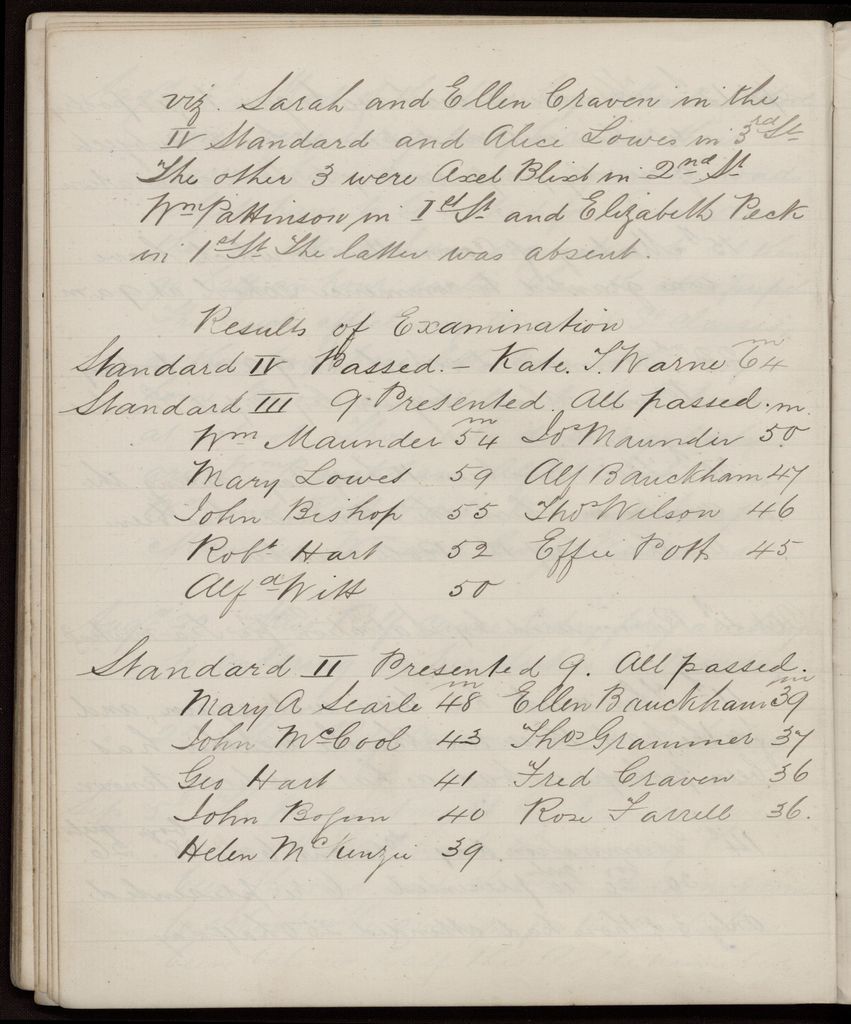 viz. Sarah and Ellen Craven in the
IV Standard and Alice Lowes in 3rd St
The other 3 were Axel Blixt in 2nd St
Wm Pattinson in 1st St and Elizabeth Peck
in 1st St The latter was absent.
Results of Examination
Standard IV Passed. - Kate. T. Warne 64 m
Standard III 9 Presented. All passed. m
Wm Maunder 54 m Jos Maunder 50
Mary Lowes 59 Alf Bauckham 47
John Bishop 55 Thos Wilson 46
Robt Hart 52 Effie Pott 45
Alfd Witt 50
Standard II Presented 9. All passed.
Mary A Searle 48 m Ellen Bauckham 39 m
John McCool 43 Thos Grammer 37
Geo Hart 41 Fred Craven 36
John 40 Rose Farrell 36.
Helen McKenzie 39